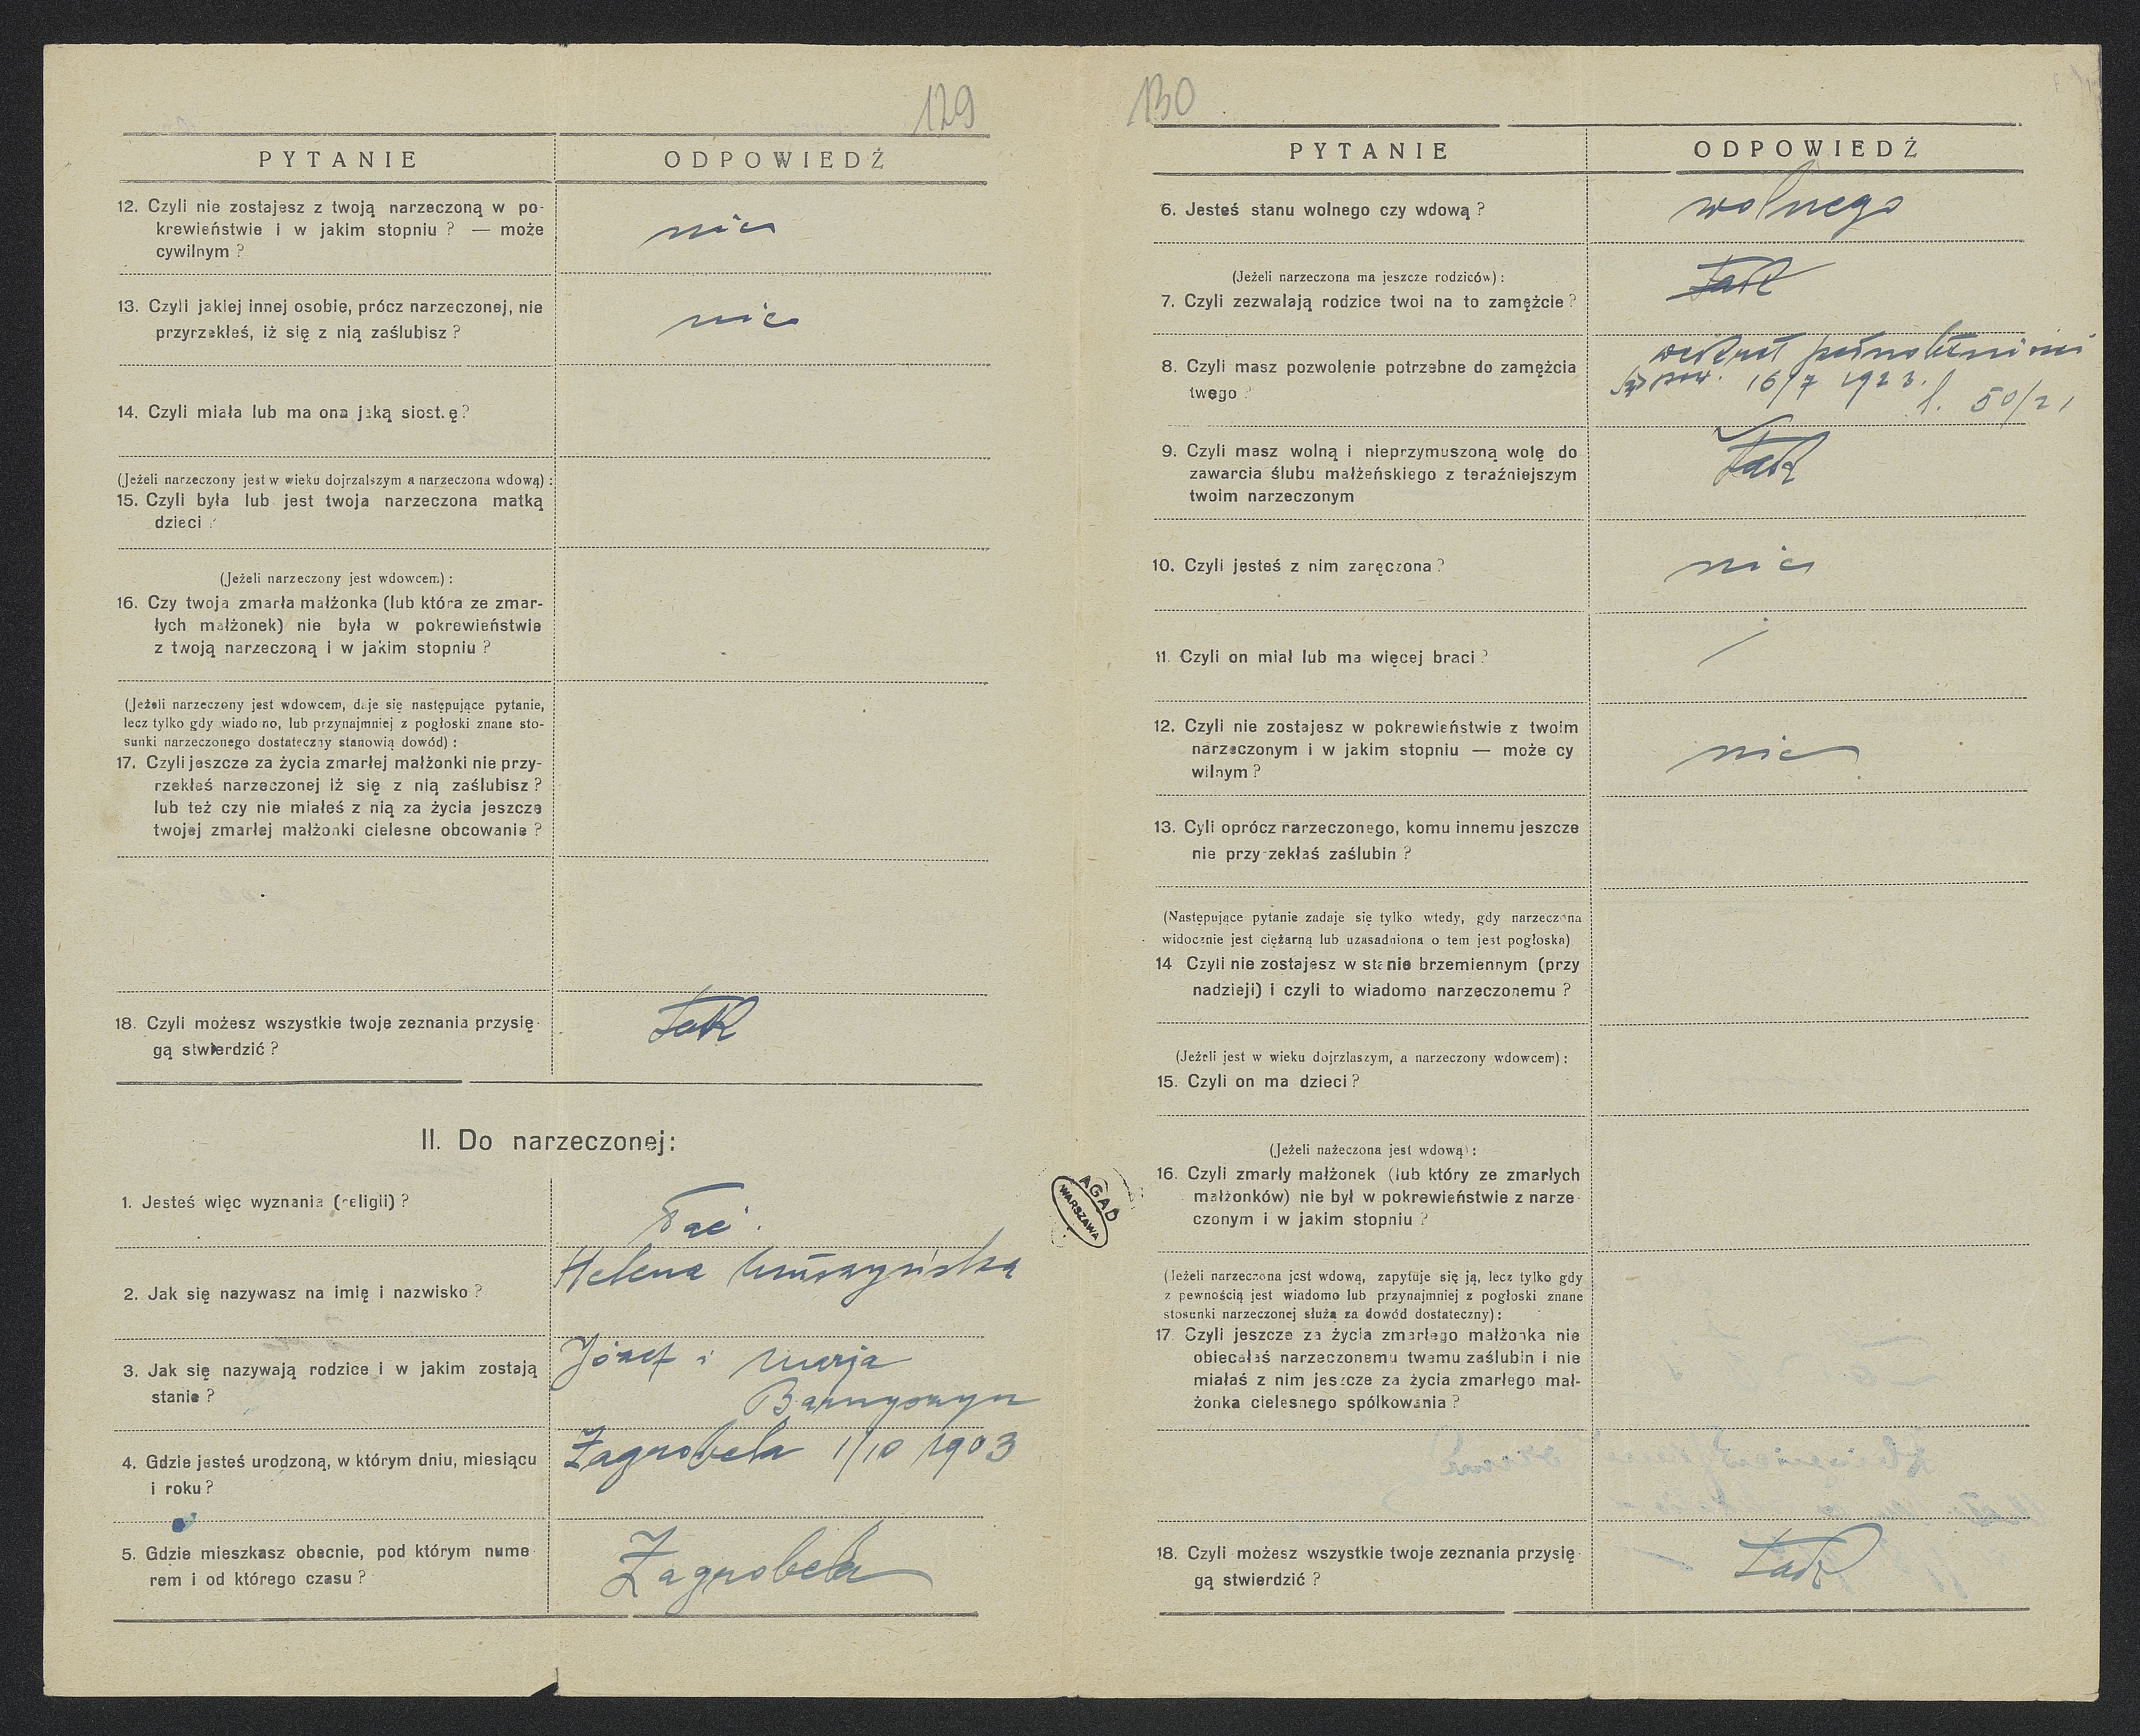 129
PYTANIE
ODPOWIEDŹ
12. Czyli nie zostajesz z twoją narzeczoną w po-
krewieństwie i w jakim stopniu ? — może
cywilnym ?
nie
13. Czyli jakiej innej osobie, prócz narzeczonej, nie
przyrzekłeś, iż się z nią zaślubisz ?
nie
14. Czyli miała lub ma ona jaką siost.ę?
(Jeżeli narzeczony jest w wieku dojrzalszym a narzeczona wdową) :
15. Czyli była lub jest twoja narzeczona matką
dzieci ?
(Jeżeli narzeczony jest wdowcem) :
16. Czy twoja zmarła małżonka (lub która ze zmar-
łych małżonek) nie była w pokrewieństwie
z twoją narzeczoną i w jakim stopniu ?
(Jeżeli narzeczony jest wdowcem, daje się następujące pytanie,
lecz tylko gdy wiado no, lub przynajmniej z pogłoski znane sto-
sunki narzeczonego dostateczny stanowią dowód) :
17. Czyli jeszcze za życia zmarłej małżonki nie przy-
rzekłeś narzeczonej iż się z nią zaślubisz ?
lub też czy nie miałeś z nią za życia jeszcze
twojej zmarłej małżonki cielesne obcowanie ?
18. Czyli możesz wszystkie twoje zeznania przysię-
gą stwierdzić ?
tak
II. Do narzeczonej:
1. Jesteś więc wyznania (religii) ?
2. Jak się nazywasz na imię i nazwisko ?
Helena
3. Jak się nazywają rodzice i w jakim zostają
stanie ?
Józef i Marja
4. Gdzie jesteś urodzoną, w którym dniu, miesiącu
i roku ?
Zagrobela 1/10 1903
5. Gdzie mieszkasz obecnie, pod którym nume
rem i od którego czasu ?
Zagrobela
AGAD
WARSZAWA
130
PYTANIE
ODPOWIEDŹ
6. Jesteś stanu wolnego czy wdową ?
wolnego
(Jeżeli narzeczona ma jeszcze rodziców) :
7. Czyli zezwalają rodzice twoi na to zamężcie ?
tak
8. Czyli masz pozwolenie potrzebne do zamężcia
twego ?
16/7 1923. l. 50/21
9. Czyli masz wolną i nieprzymuszoną wolę do
zawarcia ślubu małżeńskiego z teraźniejszym
twoim narzeczonym
tak
10. Czyli jesteś z nim zaręczona ?
nie
11. Czyli on miał lub ma więcej braci ?
/
12. Czyli nie zostajesz w pokrewieństwie z twoim
narzeczonym i w jakim stopniu — może cy
wilnym ?
nie
13. Cyli oprócz narzeczonego, komu innemu jeszcze
nie przy zekłaś zaślubin ?
(Następujące pytanie zadaje się tylko wtedy, gdy narzeczona
widocznie jest ciężarną lub uzasadniona o tem jest pogłoska)
14 Czyli nie zostajesz w stanie brzemiennym (przy
nadzieji) i czyli to wiadomo narzeczonemu ?
(Jeżeli jest w wieku dojrzlaszym, a narzeczony wdowcem) :
15. Czyli on ma dzieci ?
(Jeżeli nażeczona jest wdową) :
16. Czyli zmarły małżonek (lub który ze zmarłych
małżonków) nie był w pokrewieństwie z narze-
czonym i w jakim stopniu ?
(Jeżeli narzeczona jest wdową, zapytuje się ją, lecz tylko gdy
z pewnością jest wiadomo lub przynajmniej z pogłoski znane
stosunki narzeczonej służą za dowód dostateczny) :
17. Czyli jeszcze za życia zmarłego małżonka nie
obiecałaś narzeczonemu twemu zaślubin i nie
miałaś z nim jeszcze za życia zmarłego mał-
żonka cielesnego spólkowania ?
18. Czyli możesz wszystkie twoje zeznania przysię-
gą stwierdzić ?
tak